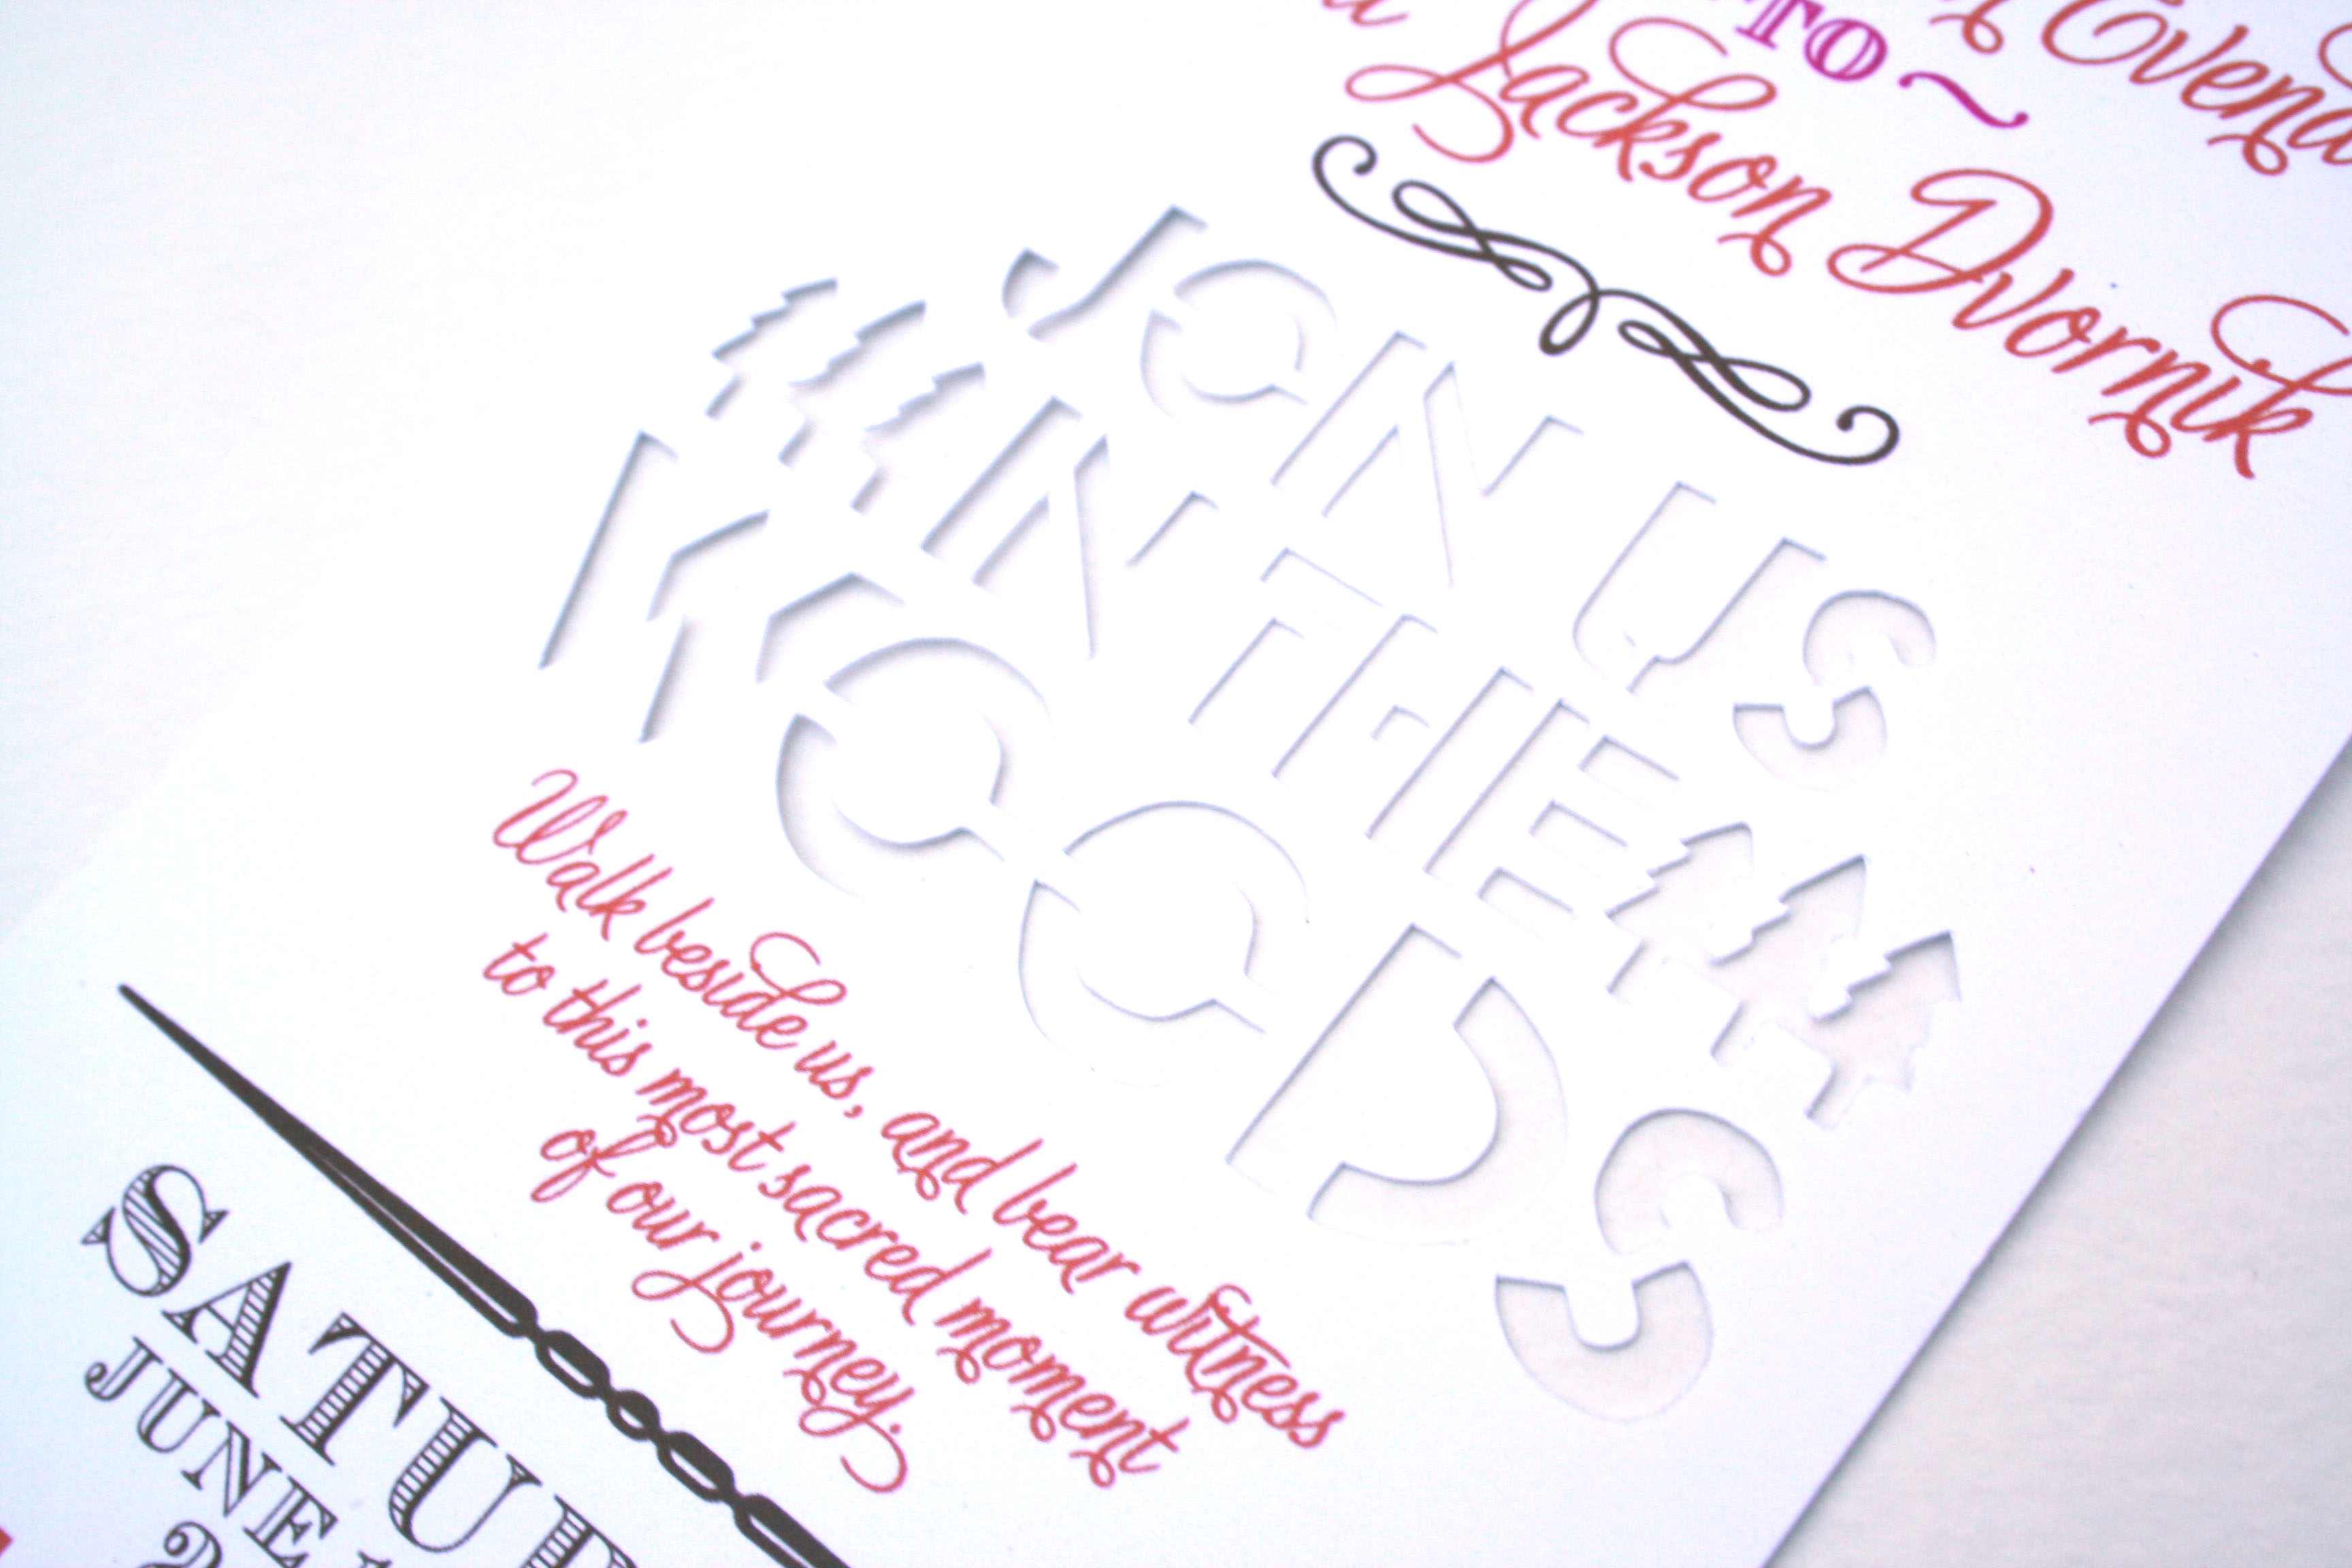 TO ~
Jackson Dvornik
JOIN US
IN THE
WOODS
Walk beside us, and bear witness
to this most sacred moment
of our journey.
JUNE